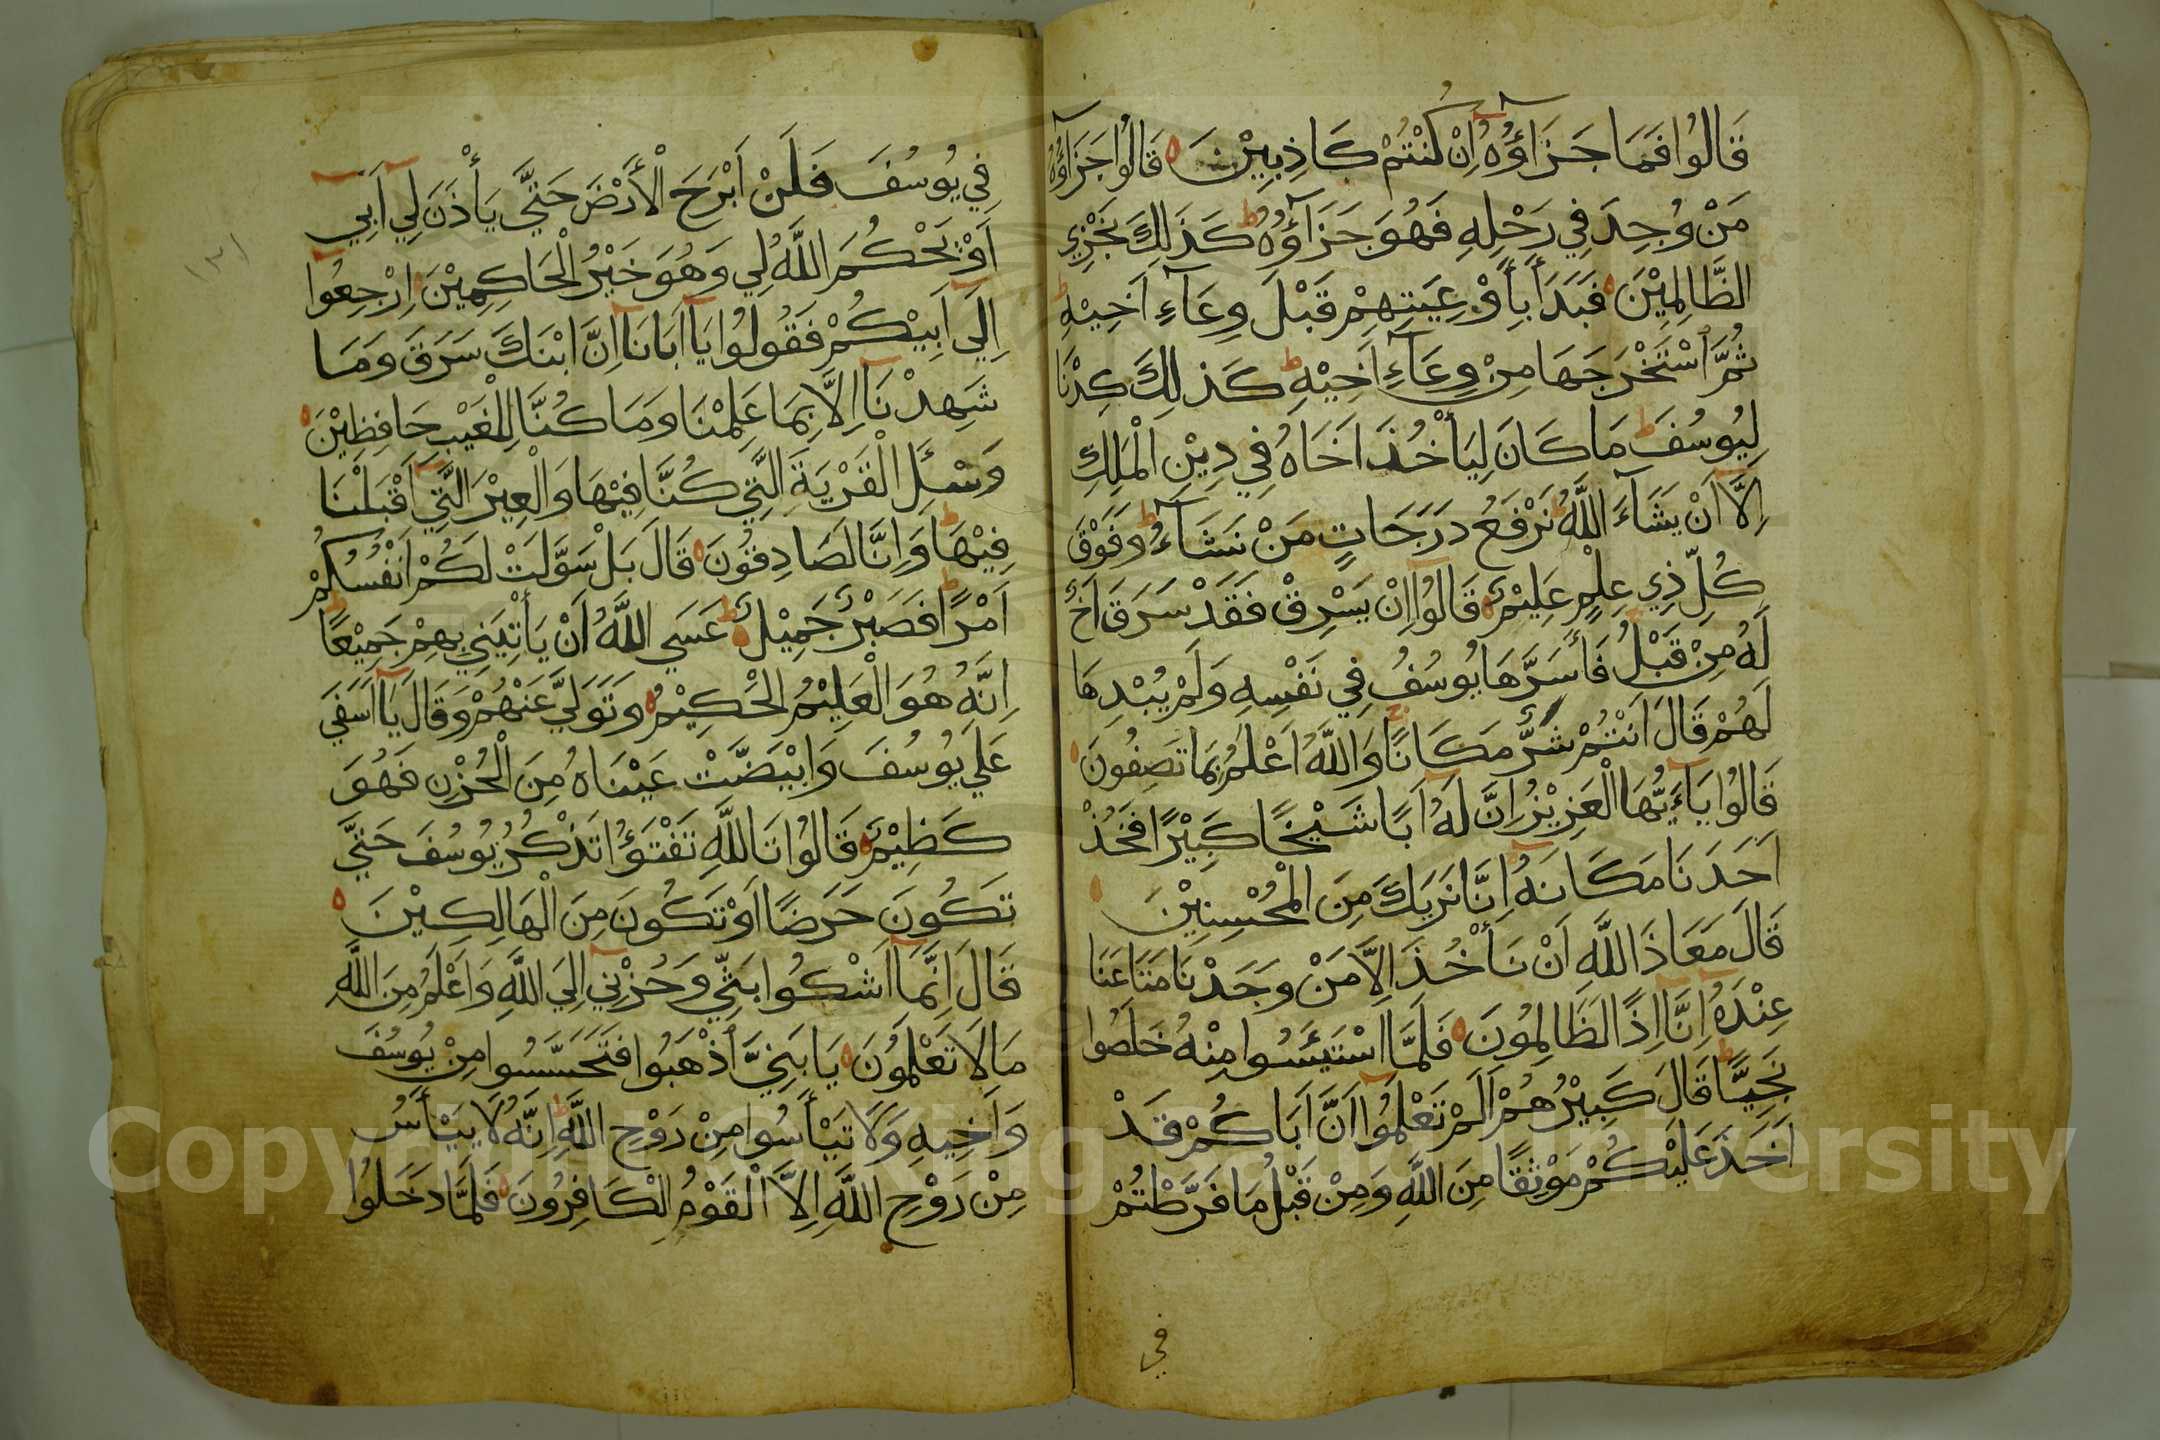 قَالُوا فَمَا جَزَآؤُهُ اِنْ كُنْتُمْ كَاذِبِيْنَ قَالُوا جَزَآؤُهُ
مَنْ وُجِدَ فِي رَحْلِهِ فَهُوَ جَزَآؤُهُ ط كَذَلِكَ نَجْزِي
الظَّالِمِيْنَ فَبَدَأَ بِأَوْعِيَتِهِمْ قَبْلَ وِعَآءِ اَخِيْهِ
ثُمَّ اسْتَخْرَجَهَا مِنْ وِعَآءِ اَخِيْهِ ط كَذَلِكَ كِدْنَا
لِيُوسُفَ ط مَا كَانَ لِيَأْخُذَ اَخَاهُ فِي دِيْنِ الْمَلِكِ
اِلَّا اَنْ يَشَآءَ اللَّهُ ط نَرْفَعُ دَرَجَاتٍ مَنْ نَشَآءُ ط وَفَوْقَ
كُلِّ ذِي عِلْمٍ عَلِيْمٌ قَالُوا اِنْ يَسْرِقْ فَقَدْ سَرَقَ اَخٌ
لَهُ مِنْ قَبْلُ فَأَسَرَّهَا يُوسُفُ فِي نَفْسِهِ وَلَمْ يُبْدِهَا
لَهُمْ قَالَ اَنْتُمْ شَرٌّ مَكَانًا ج وَاللَّهُ اَعْلَمُ بِمَا تَصِفُونَ
قَالُوا يَآءَيُّهَا الْعَزِيْزُ اِنَّ لَهُ اَبًا شَيْخًا كَبِيْرًا فَخُذْ
اَحَدَنَا مَكَانَهُ اِنَّا نَرَيكَ مِنَ الْمُحْسِنِيْنَ
قَالَ مَعَاذَ اللَّهِ اَنْ نَأْخُذَ اِلَّا مَنْ وَجَدْنَا مَتَاعَنَا
عِنْدَهُ اِنَّا اِذًا لَظَالِمُونَ فَلَمَّا اسْتَيْئَسُوا مِنْهُ خَلَصُوا
نَجِيًّا ط قَالَ كَبِيْرُهُمْ اَلَمْ تَعْلَمُوا اَنَّ اَبَاكُمْ قَدْ
اَخَذَ عَلَيْكُمْ مَوْثِقًا مِنَ اللَّهِ وَمِنْ قَبْلُ مَا فَرَّطْتُمْ
في
فِي يُوسُفَ فَلَنْ اَبْرَحَ الْأَرْضَ حَتَّي يَأْذَنَ لِي اَبِي
اَوْ يَحْكُمَ اللَّهُ لِي وَهُوَ خَيْرُ الْحَاكِمِيْنَ اِرْجِعُوا
اِلَي اَبِيْكُمْ فَقُولُوا يَا اَبَانَا اِنَّ ابْنَكَ سَرَقَ وَمَا
شَهِدْنَا اِلَّا بِمَا عَلِمْنَا وَمَا كُنَّا لِلْغَيْبِ حَافِظِيْنَ
وَسْئَلِ الْقَرْيَةَ الَّتِي كُنَّا فِيْهَا وَالْعِيْرَ الَّتِي اَقْبَلْنَا
فِيْهَا ط وَاِنَّا لَصَادِقُونَ قَالَ بَلْ سَوَّلَتْ لَكُمْ اَنْفُسُكُمْ
اَمْرًا ط فَصَبْرٌ جَمِيْلٌ ط عَسَي اللَّهُ اَنْ يَأْتِيَنِي بِهِمْ جَمِيْعًا ط
اِنَّهُ هُوَ الْعَلِيْمُ الْحَكِيْمُ وَتَوَلَّي عَنْهُمْ وَقَالَ يَا اَسَفَي
عَلَي يُوسُفَ وَابْيَضَّتْ عَيْنَاهُ مِنَ الْحُزْنِ فَهُوَ
كَظِيْمٌ قَالُوا تَاللَّهِ تَفْتَؤُا تَذْكُرُ يُوسُفَ حَتَّي
تَكُونَ حَرَضًا اَوْ تَكُونَ مِنَ الْهَالِكِيْنَ
قَالَ اِنَّمَا اَشْكُوا بَثِّي وَحُزْنِي اِلَي اللَّهِ وَاَعْلَمُ مِنَ اللَّهِ
مَا لَا تَعْلَمُونَ يَا بَنِيَّ اذْهَبُوا فَتَحَسَّسُوا مِنْ يُوسُفَ
وَاَخِيهِ وَلَا تَيْأَسُوا مِنْ رَوْحِ اللَّهِ ط اِنَّهُ لَا يَيْأَسُ
مِنْ رَوْحِ اللَّهِ اِلَّا الْقَوْمُ الْكَافِرُونَ فَلَمَّا دَخَلُوا
Copyright © King Saud University